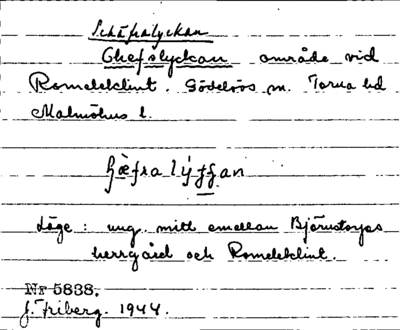 Schäfralyckan
Chefslyckan område vid
Romeleklint. Gödelövs sn. Torna hd
Malmöhus l.
Läge: ung. mitt emellan Björnstorps
herrgård och Romeleklint.
Nr 5838.
J. Friberg. 1944.